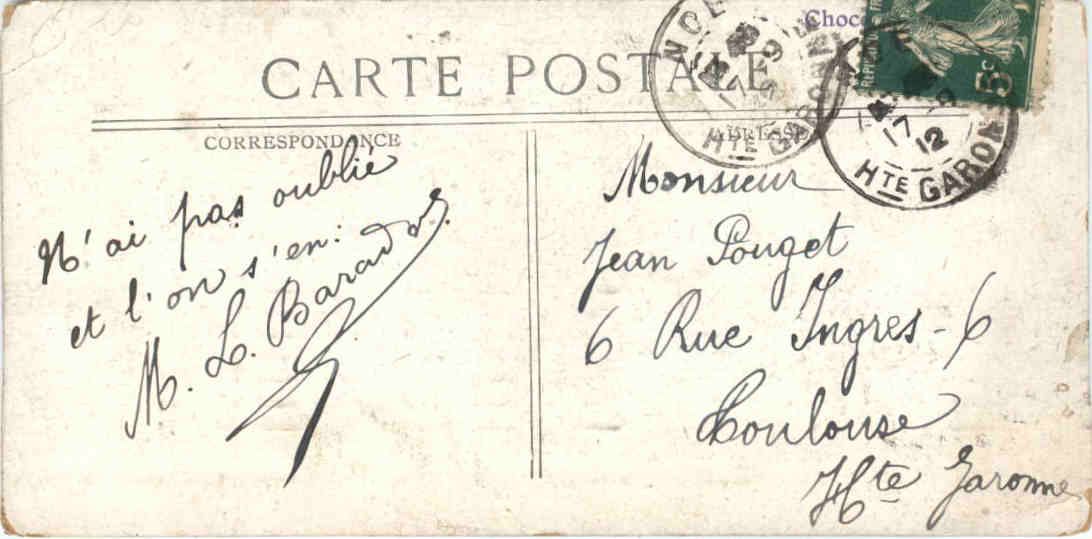 Choc
CARTE POSTALE
REPUBLIQUE
5c
17-9
HTE GARONNE
17-9
12
HTE GARON
CORRESPONDANCE
ADRESSE
N'ai pas oublié
et l'on s'en:
M. L. Barad
Monsieur
Jean Pouget
6 Rue Ingres-6
Toulouse
Hte Garonne